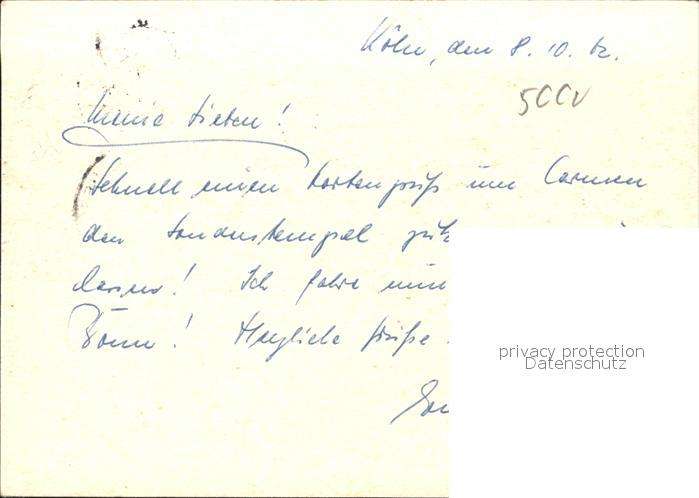 Köln, den 8. 10. 62.
5CCV
Meine Lieben!
Schnell einen Kartengruß um Carmen
den Sonderstempel
lassen! Ich fahre nun
Bonn! Herzliche Grüße
privacy protection
Datenschutz